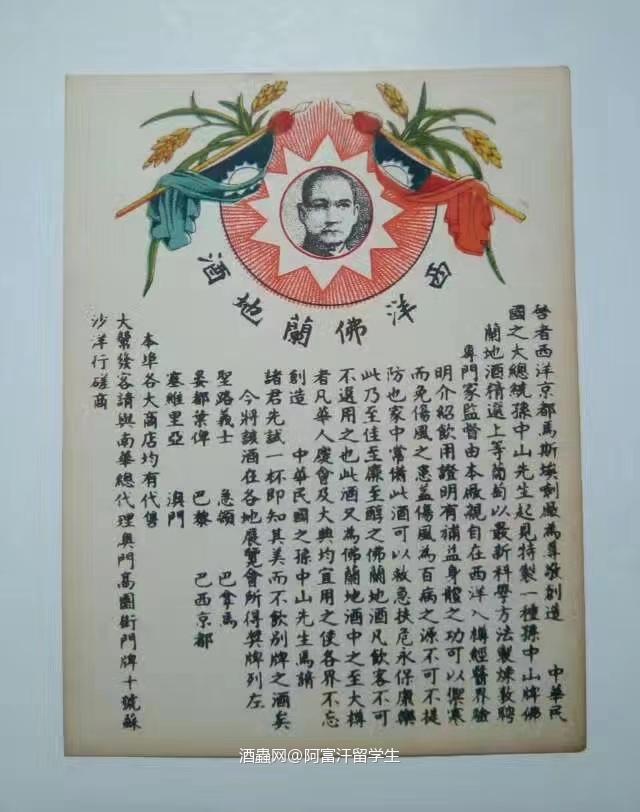 西洋佛蘭地酒
啓者西洋京都馬斯埃利廠為尊敬創造 中華民
國之大總統孫中山先生起見特製一種孫中山牌佛
蘭地酒精選上等葡萄以最新科學方法製煉敦聘
專門家監督由本廠親自在西洋入樽經醫界驗
明介紹飲用證明有補益身體之功可以禦寒
而免傷風之患蓋傷風為百病之源不可不提
防也家中常備此酒可以救急扶危永保康樂
此乃至佳至廉至醇之佛蘭地酒凡飲客不可
不選用之也此酒又為佛蘭地酒中之至大樽
者凡華人慶會及大典均宜用之使各界不忘
創造 中華民國之孫中山先生焉請
諸君先試一杯即知其美而不飲別牌之酒矣
今將該酒在各地展覽會所得獎牌列左
聖路義士 急頓 巴拿馬
晏都葉俾 巴黎 巴西京都
塞維里亞 澳門
本埠各大商店均有代售
大幫發客請與南華總代理奧門高園街門牌十號蘇
沙洋行磋商
酒蟲网@阿富汗留学生